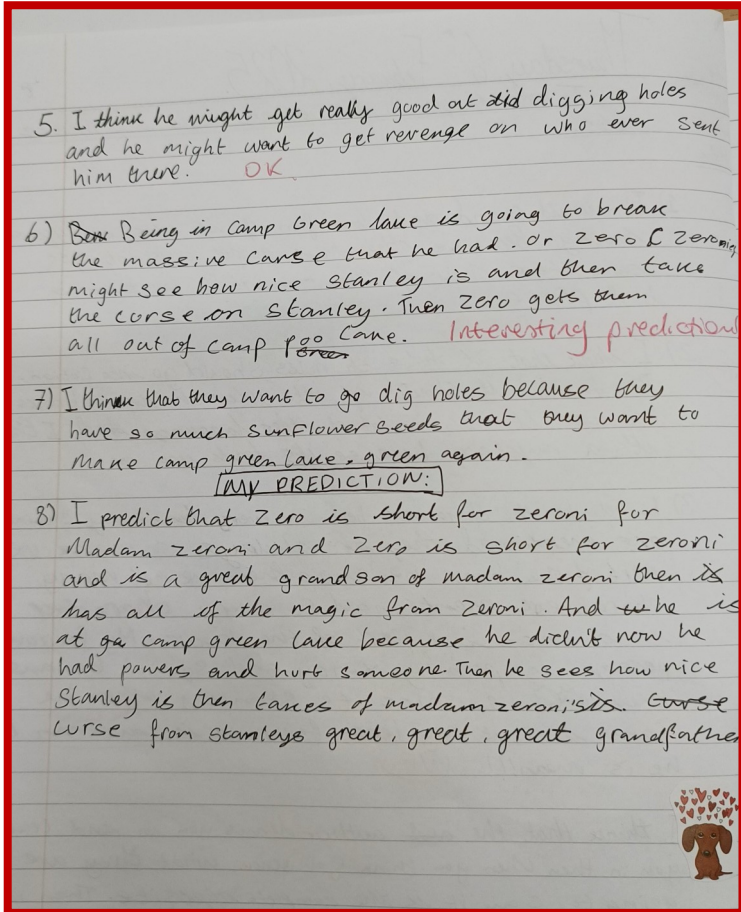 5. I think he miught get really good at digging holes
and he might want to get revenge on who ever sent
him there. OK
6) Being in camp Green lake is going to break
the massive carse that he had. Or zero ( zeronie
might see how nice Stanley is and then take
the corse on Stanley. Then zero gets them
all out of camp poo lake. Interesting prediction
7) I think that they want to go dig holes because they
have so much sunflower seeds that they want to
make camp green lake, green again.
MY PREDICTION:
8) I predict that zero is short for zeroni for
Madam zeroni and Zero is short for zeroni
and is a great grandson of madam zeroni then is
has all of the magic from zeroni. And he is
at camp green lake because he didn't now he
had powers and hurt someone. Then he sees how nice
Stanley is then takes of madam zeroni's curse
curse from Stanleys great, great, great grandfather